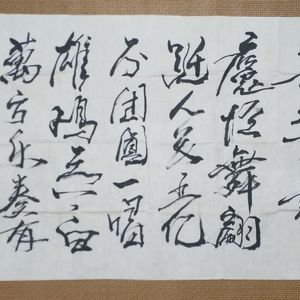 魔怪舞翩
跹人民五亿
不团圓一唱
雄鸡天下白
萬方乐奏有